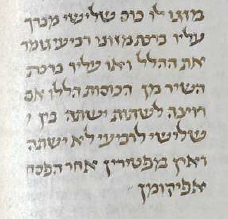 מזגו לו כוס שלישי מברך
עליו ברכת מזונו רביעי גומר
את ההלל ואו עליו ברכת
השיר בין הכוסות הללו אם
רוצה לשתות ישתה בין
שלישי לרביעי לא ישתה
ואין מפטירין אחר הפסח
אפיקומן